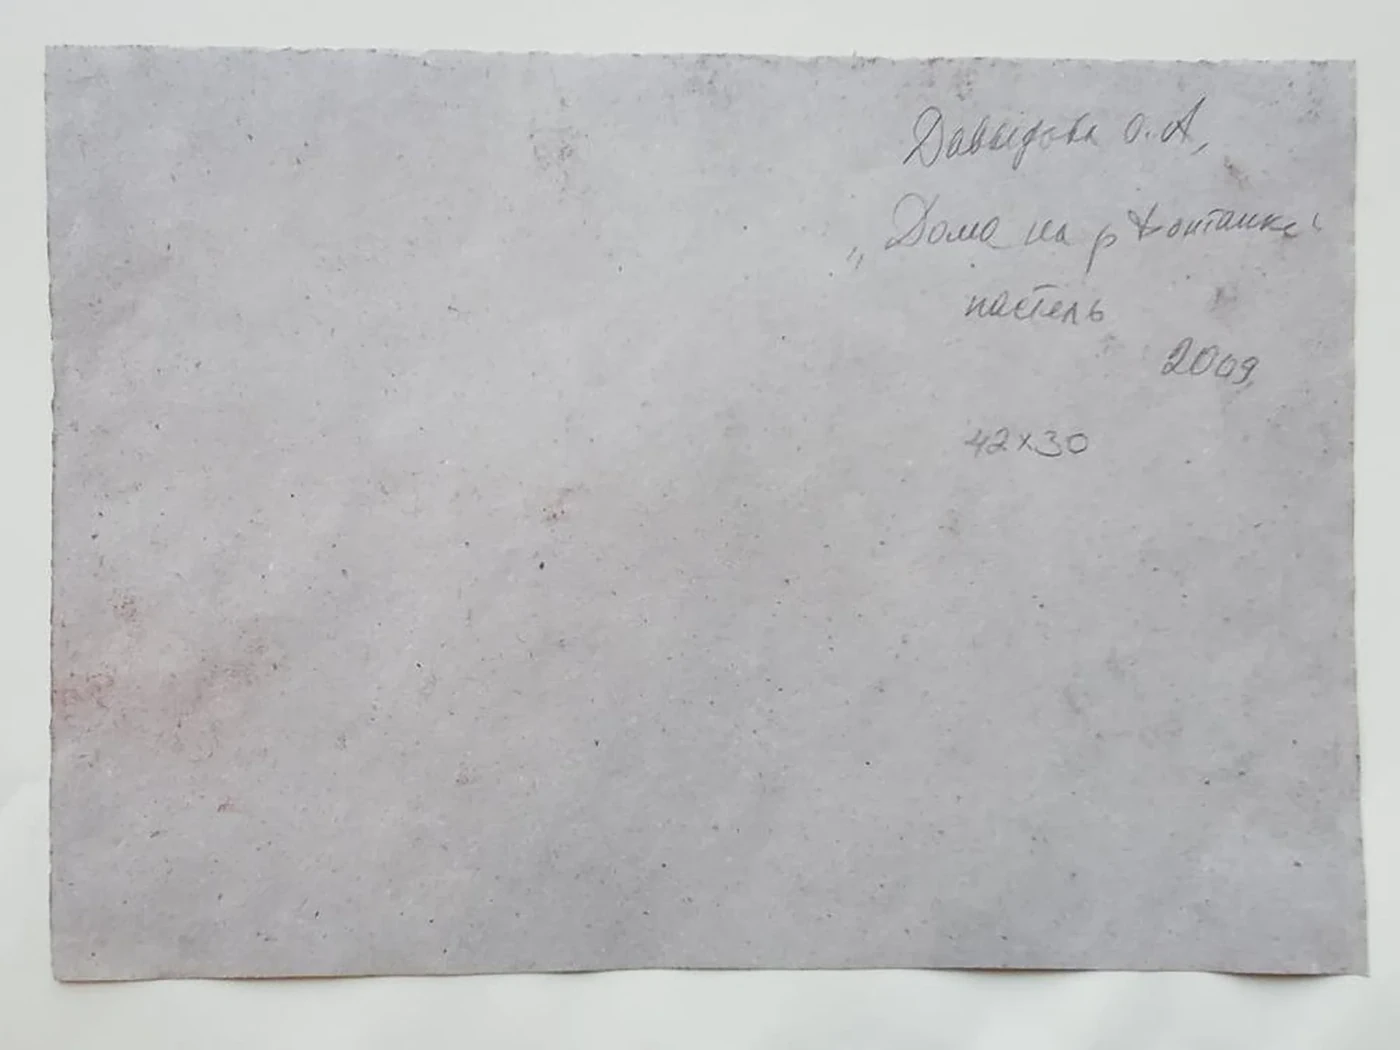 Давыдова О. А,
„Дома на р Фонтанке“
пастель
2009,
42х30